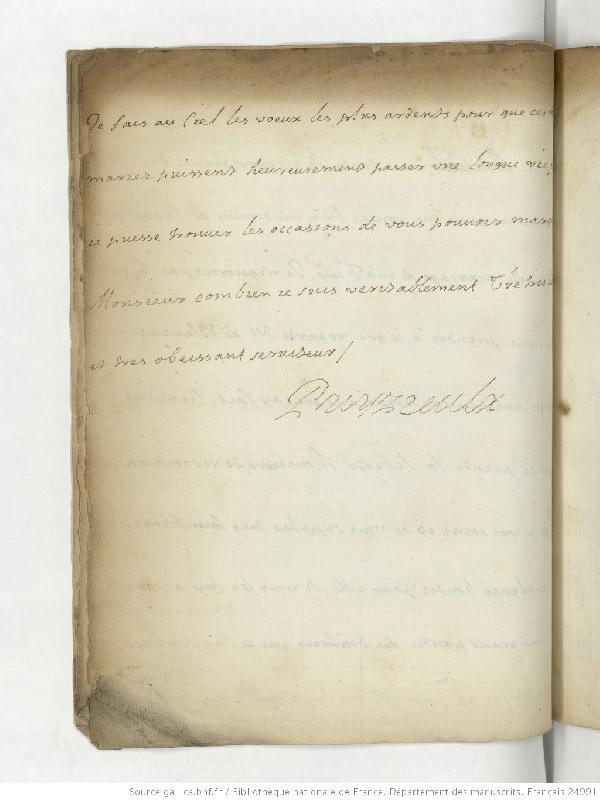 Je fais au Ciel les voeux les plus ardents pour que ces
mariez puissent heureusement passer une longue vie
ie puisse trouuer les occasions de vous pouuoir
Monsieur combien ie suis veritablement Tres
et tres obeissant seruiteur /
Source gallica.bnf.fr / Bibliothèque nationale de France. Département des manuscrits. Français 24991